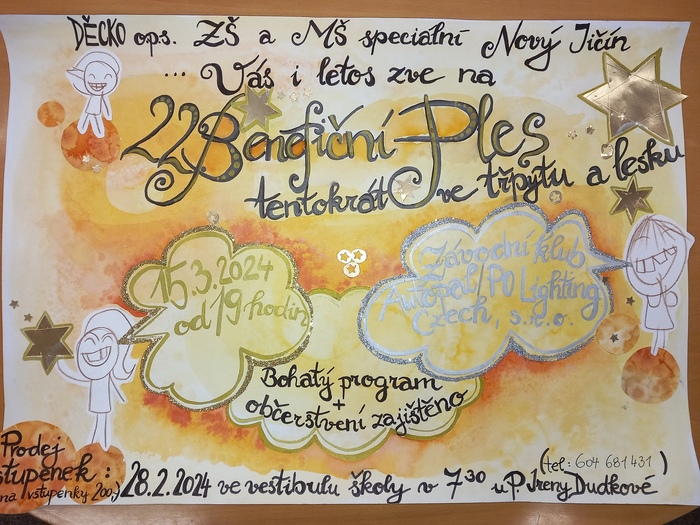 DĚCKO ops. ZŠ a MŠ speciální Nový Jičín
... Vás i letos zve na
22 Benefiční Ples
tentokrát ve třpytu a lesku
15.3.2024
od 19 hodin
Závodní klub
Autopal/PO Lighting
Czech, s.r.o.
Bohatý program
+
občerstvení zajištěno
Prodej
stupenek:
na vstupenky 200,-)
28.2.2024 ve vestibulu školy v 7³⁰ u P. Ireny Dudkové
(tel: 604 681 431)